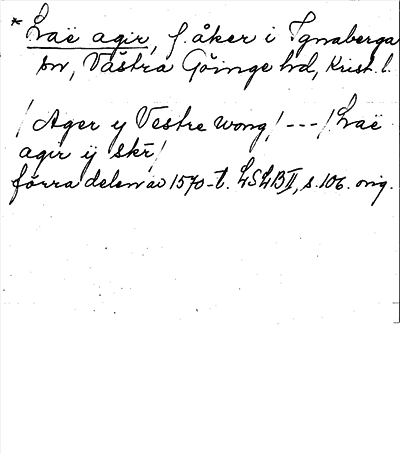 * Lraë agir, f. åker i Ignaberga
sn, Västra Göinge hd, Krist. l.
/ Ager y Vestre wong / --- / Lraë
agir ij skr̄ /
förra delen av 1570-t. LSLB II, s. 106. orig.